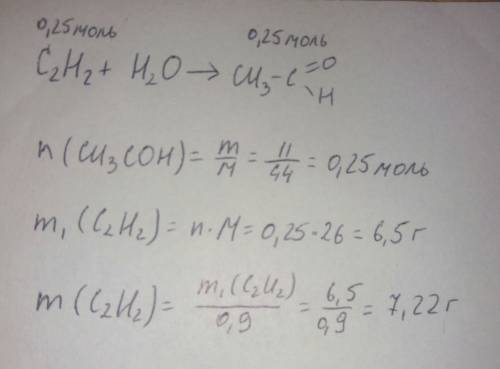 0,25моль 0,25моль
C₂H₂ + H₂O → CH₃-C=O
H
n(CH₃COH) = m/M = 11/44 = 0,25 моль
m₁(C₂H₂) = n·M = 0,25·26 = 6,5 г
m(C₂H₂) = m₁(C₂H₂)/0,9 = 6,5/0,9 = 7,22 г